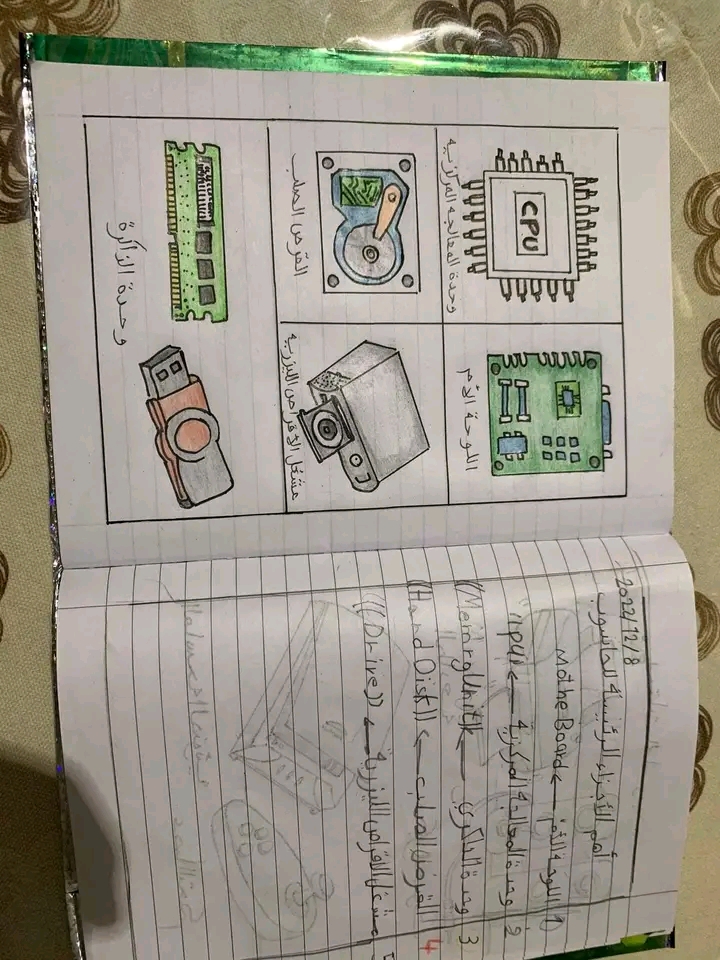 CPU
وحدة المعالجة المركزية
اللوحة الأم
القرص الصلب
مشغل الاقراص الليزرية
وحدة الذاكرة
2022/12/8
أهم الأجزاء الرئيسة للحاسوب
1 اللوحة الأم ← Mothe Board
2 وحدة المعالجة المركزية ←
3 وحدة الذاكري ← ((Memory Unit
4 القرص الصلب ← ((Hand Disk))
5 مشغل الاقراص الليزرية ← ((Drive))